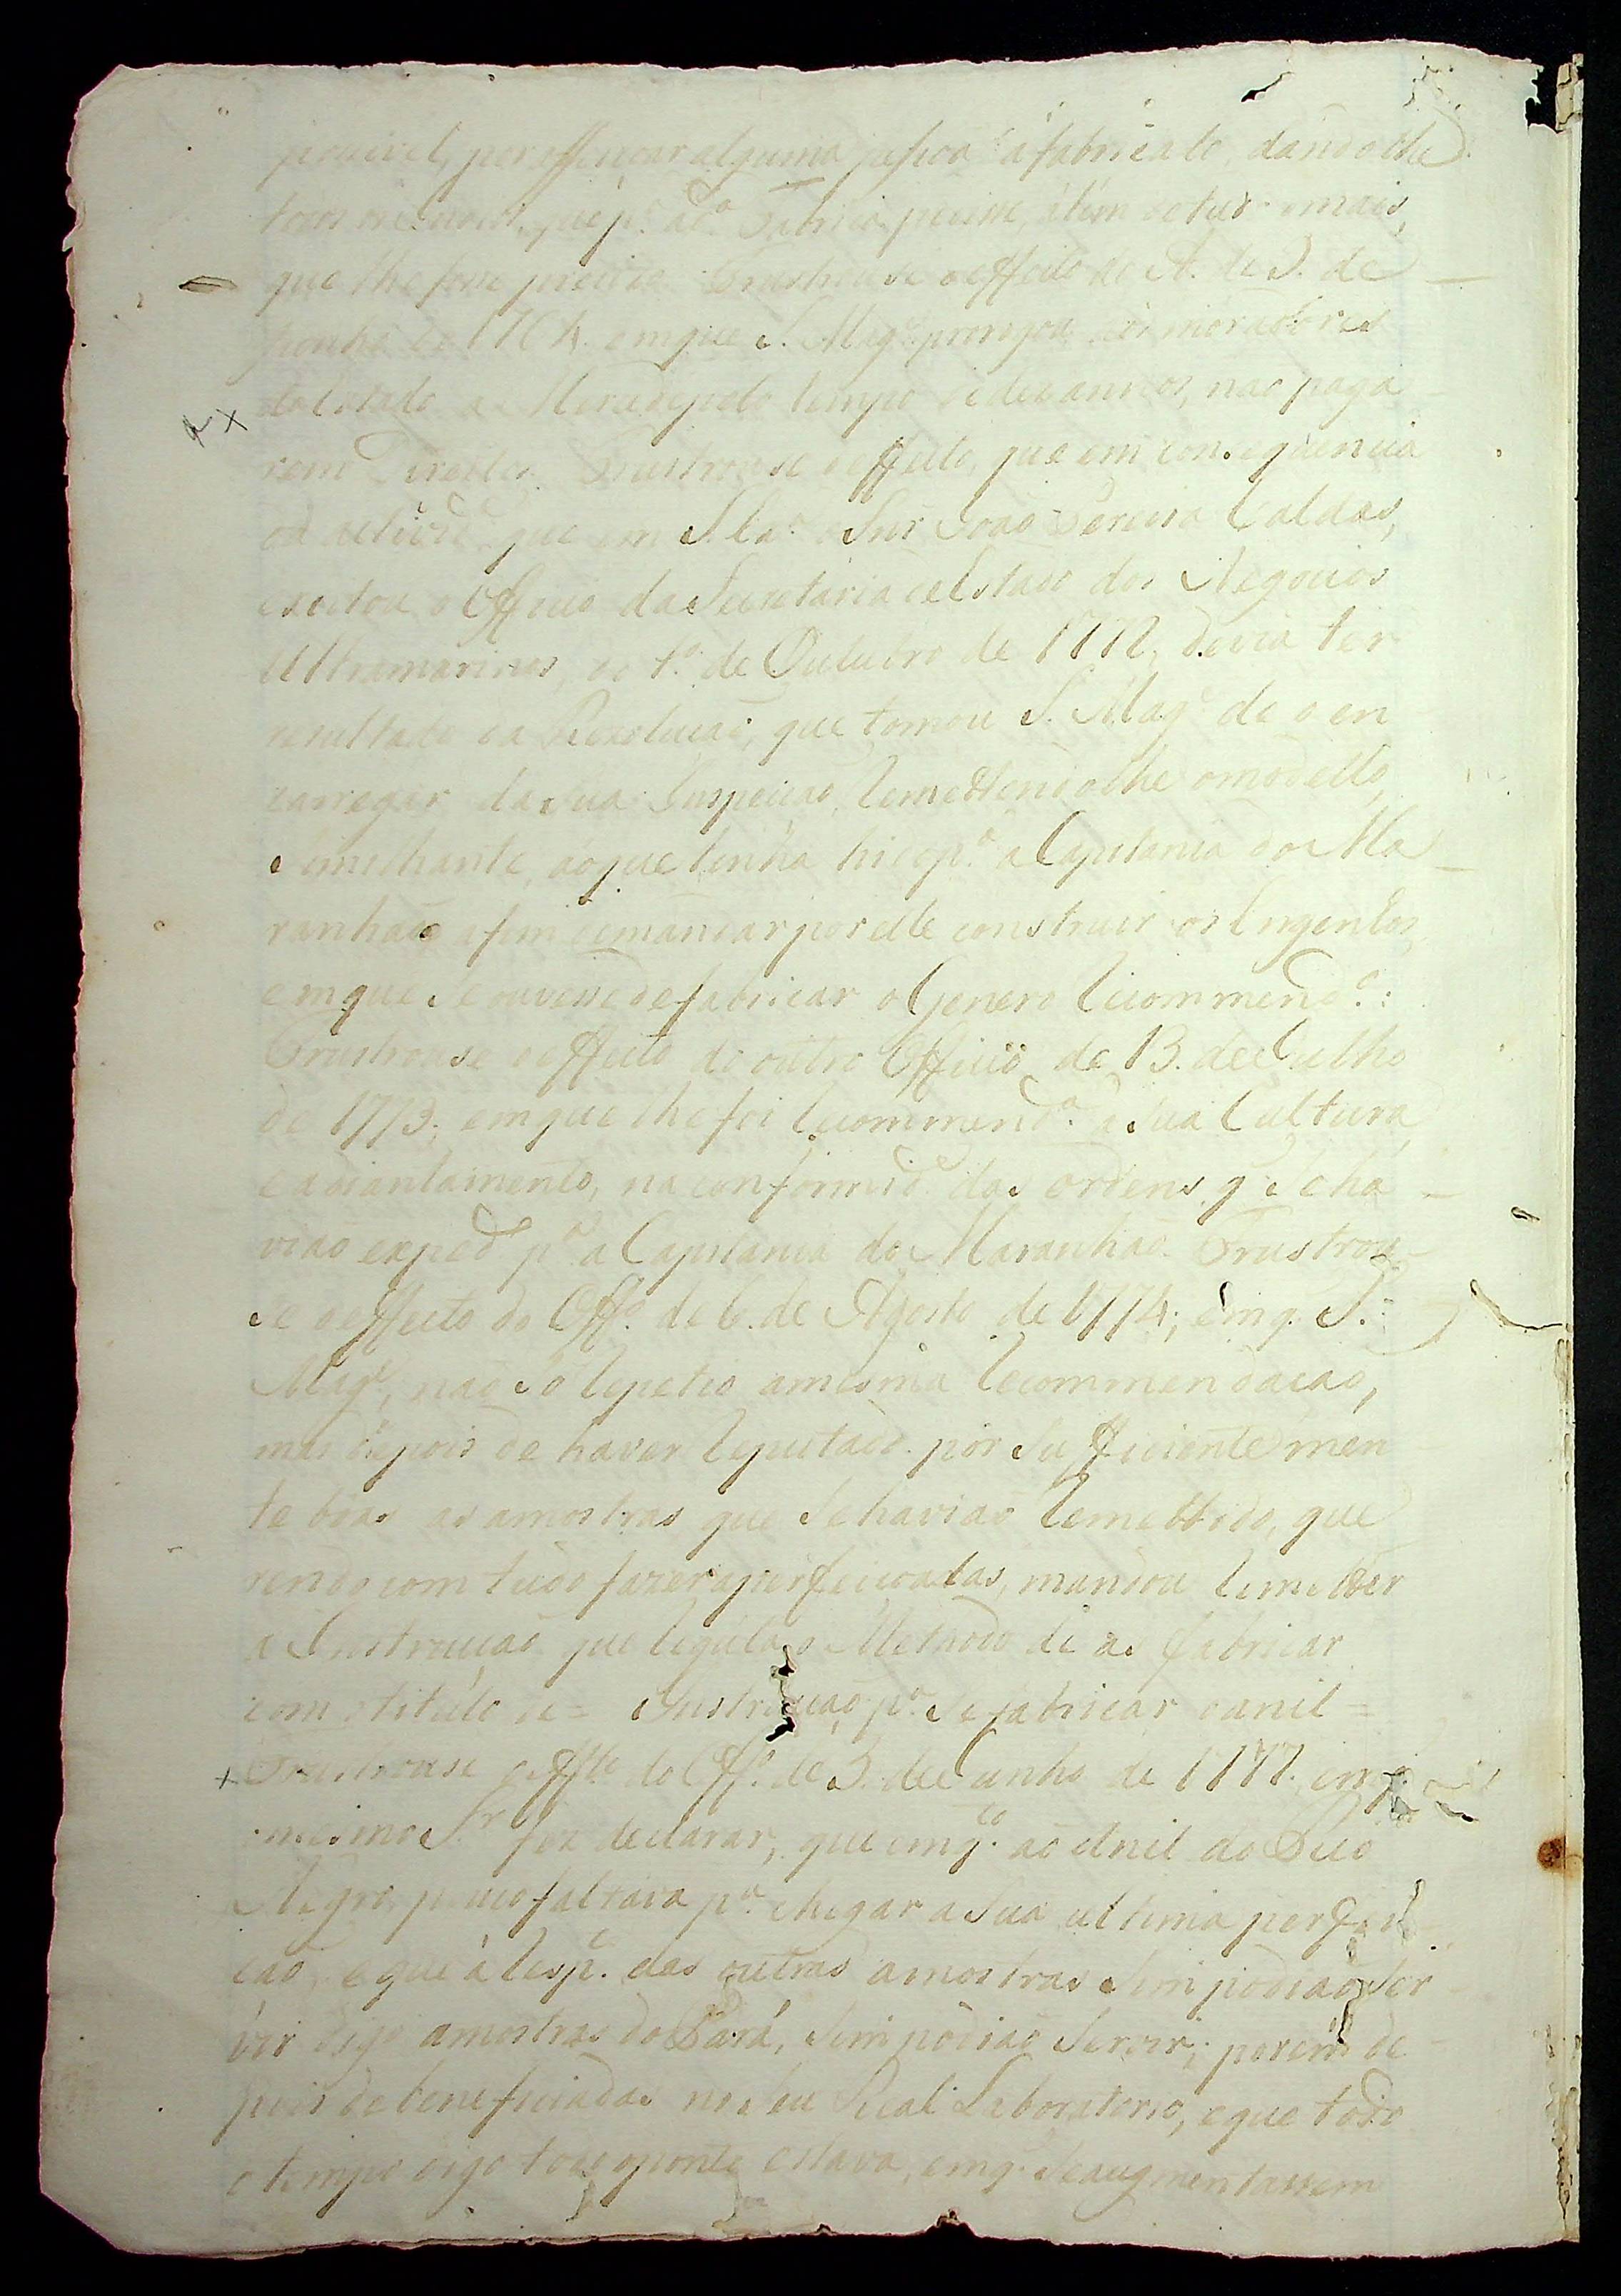 possivel, por esforçar alguma pessoa a fabricalo, dandolhe
todos que p.ª ad.ª Fabrica pecisse, álem de tudo o mais,
que lhe fosse preciso. Frustrouse o effeito do A. de S. de
Junho de 1764. emque S. Mag.e aos moradores
do Estado a Merce, pelo tempo de dez annos, não paga
rem Direitos. Frustrouse o effeito, que em conseqûencia
da que em S. Ex.ª o Snr João Pereira Caldas,
excitou o Officio da Secretaria de Estado dos Negocios
Ultramarinos, de 1.º de Outubro de 1772, devia ter
resultado da Rezolução, que tomou S. Mag.e de o en
carregar da sua Inspeição, remettendolhe o modello,
semelhante, ao que tinha hido p.ª a Capitania do Ma
ranhão a fim de mandar por elle construir os Engenhos,
em que se ouvesse de fabricar o Genero recommend.º:
Frustrouse o effeito do outro Officio de 13. de Julho
de 1773; emque lhe foi recommend.ª a sua Cultura,
e adiantamento, na conformid.e das ordens q se ha
vião exped.as p.ª a Capitania do Maranhão. Frustrou
se o effeito do Off.º de 6. de Agosto de 1774; emq. S.
Mag.e, não só repetio amesma recommendação,
mas depois de haver reputado por sufficientemen
te boas as amostras que se havião remettido, que
rendo com tudo fazer aperfeiçoalas, mandou remetter
a Instrucção que regula o Methodo de as fabricar
com o titulo de = Instrucção p.ª se fabricar o anil =
Frustrouse o eff.to do Off.º de 3. de Junho de 1777. emq.
o mesmo S.r fez declarar, que emq.to ao Anil do Rio
Negro, pouco faltava p.ª chegar a sua ultima perfei
ção, e que á resp.to das outras amostras sim podião ser
vir digo amostras do Pará, sim podião servir; porém de
pois de beneficiadas no seu Real Laboratorio, e que todo
o tempo digo todo o ponto estava, emq. se augmentassem